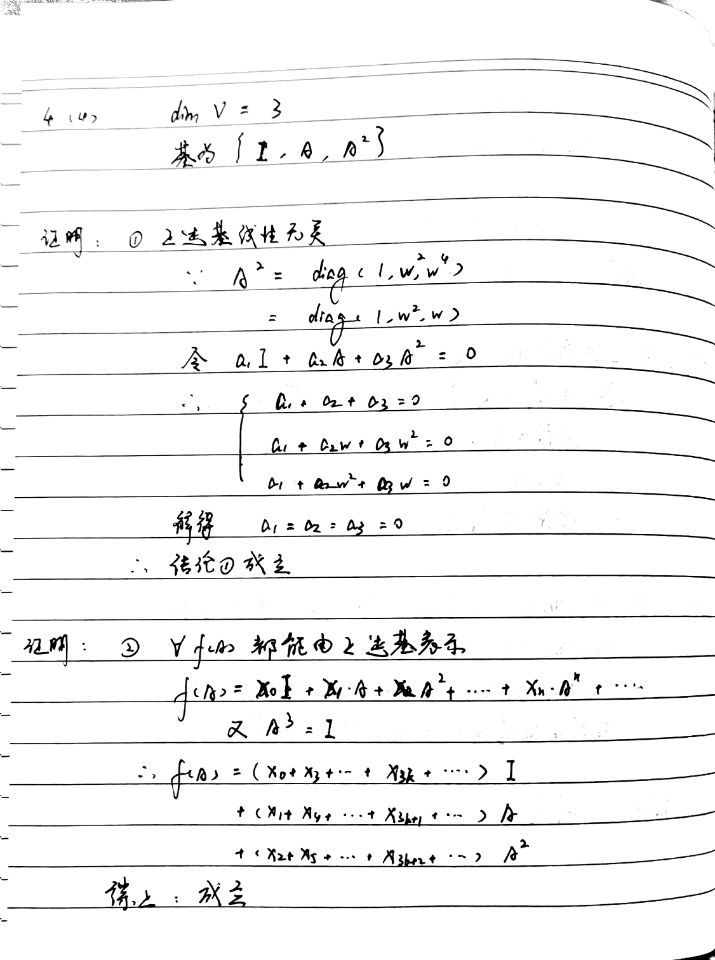 4 (4) dim V = 3
基为 { I , A , A² }
证明 : ① 上述基线性无关
∵ A² = diag ( 1, w², w⁴ )
= diag ( 1, w², w )
令 a₁I + a₂A + a₃A² = 0
∴ { a₁ + a₂ + a₃ = 0
a₁ + a₂w + a₃w² = 0
a₁ + a₂w² + a₃w = 0
解得 a₁ = a₂ = a₃ = 0
∴ 结论①成立
证明 : ② ∀ f(A) 都能由上述基表示
f(A) = x₀I + x₁·A + x₂A² + ···· + xₙ·Aⁿ + ····
又 A³ = I
∴ f(A) = ( x₀ + x₃ + ··· + x₃ₖ + ···· ) I
+ ( x₁ + x₄ + ··· + x₃ₖ₊₁ + ··· ) A
+ ( x₂ + x₅ + ··· + x₃ₖ₊₂ + ··· ) A²
综上 : 成立